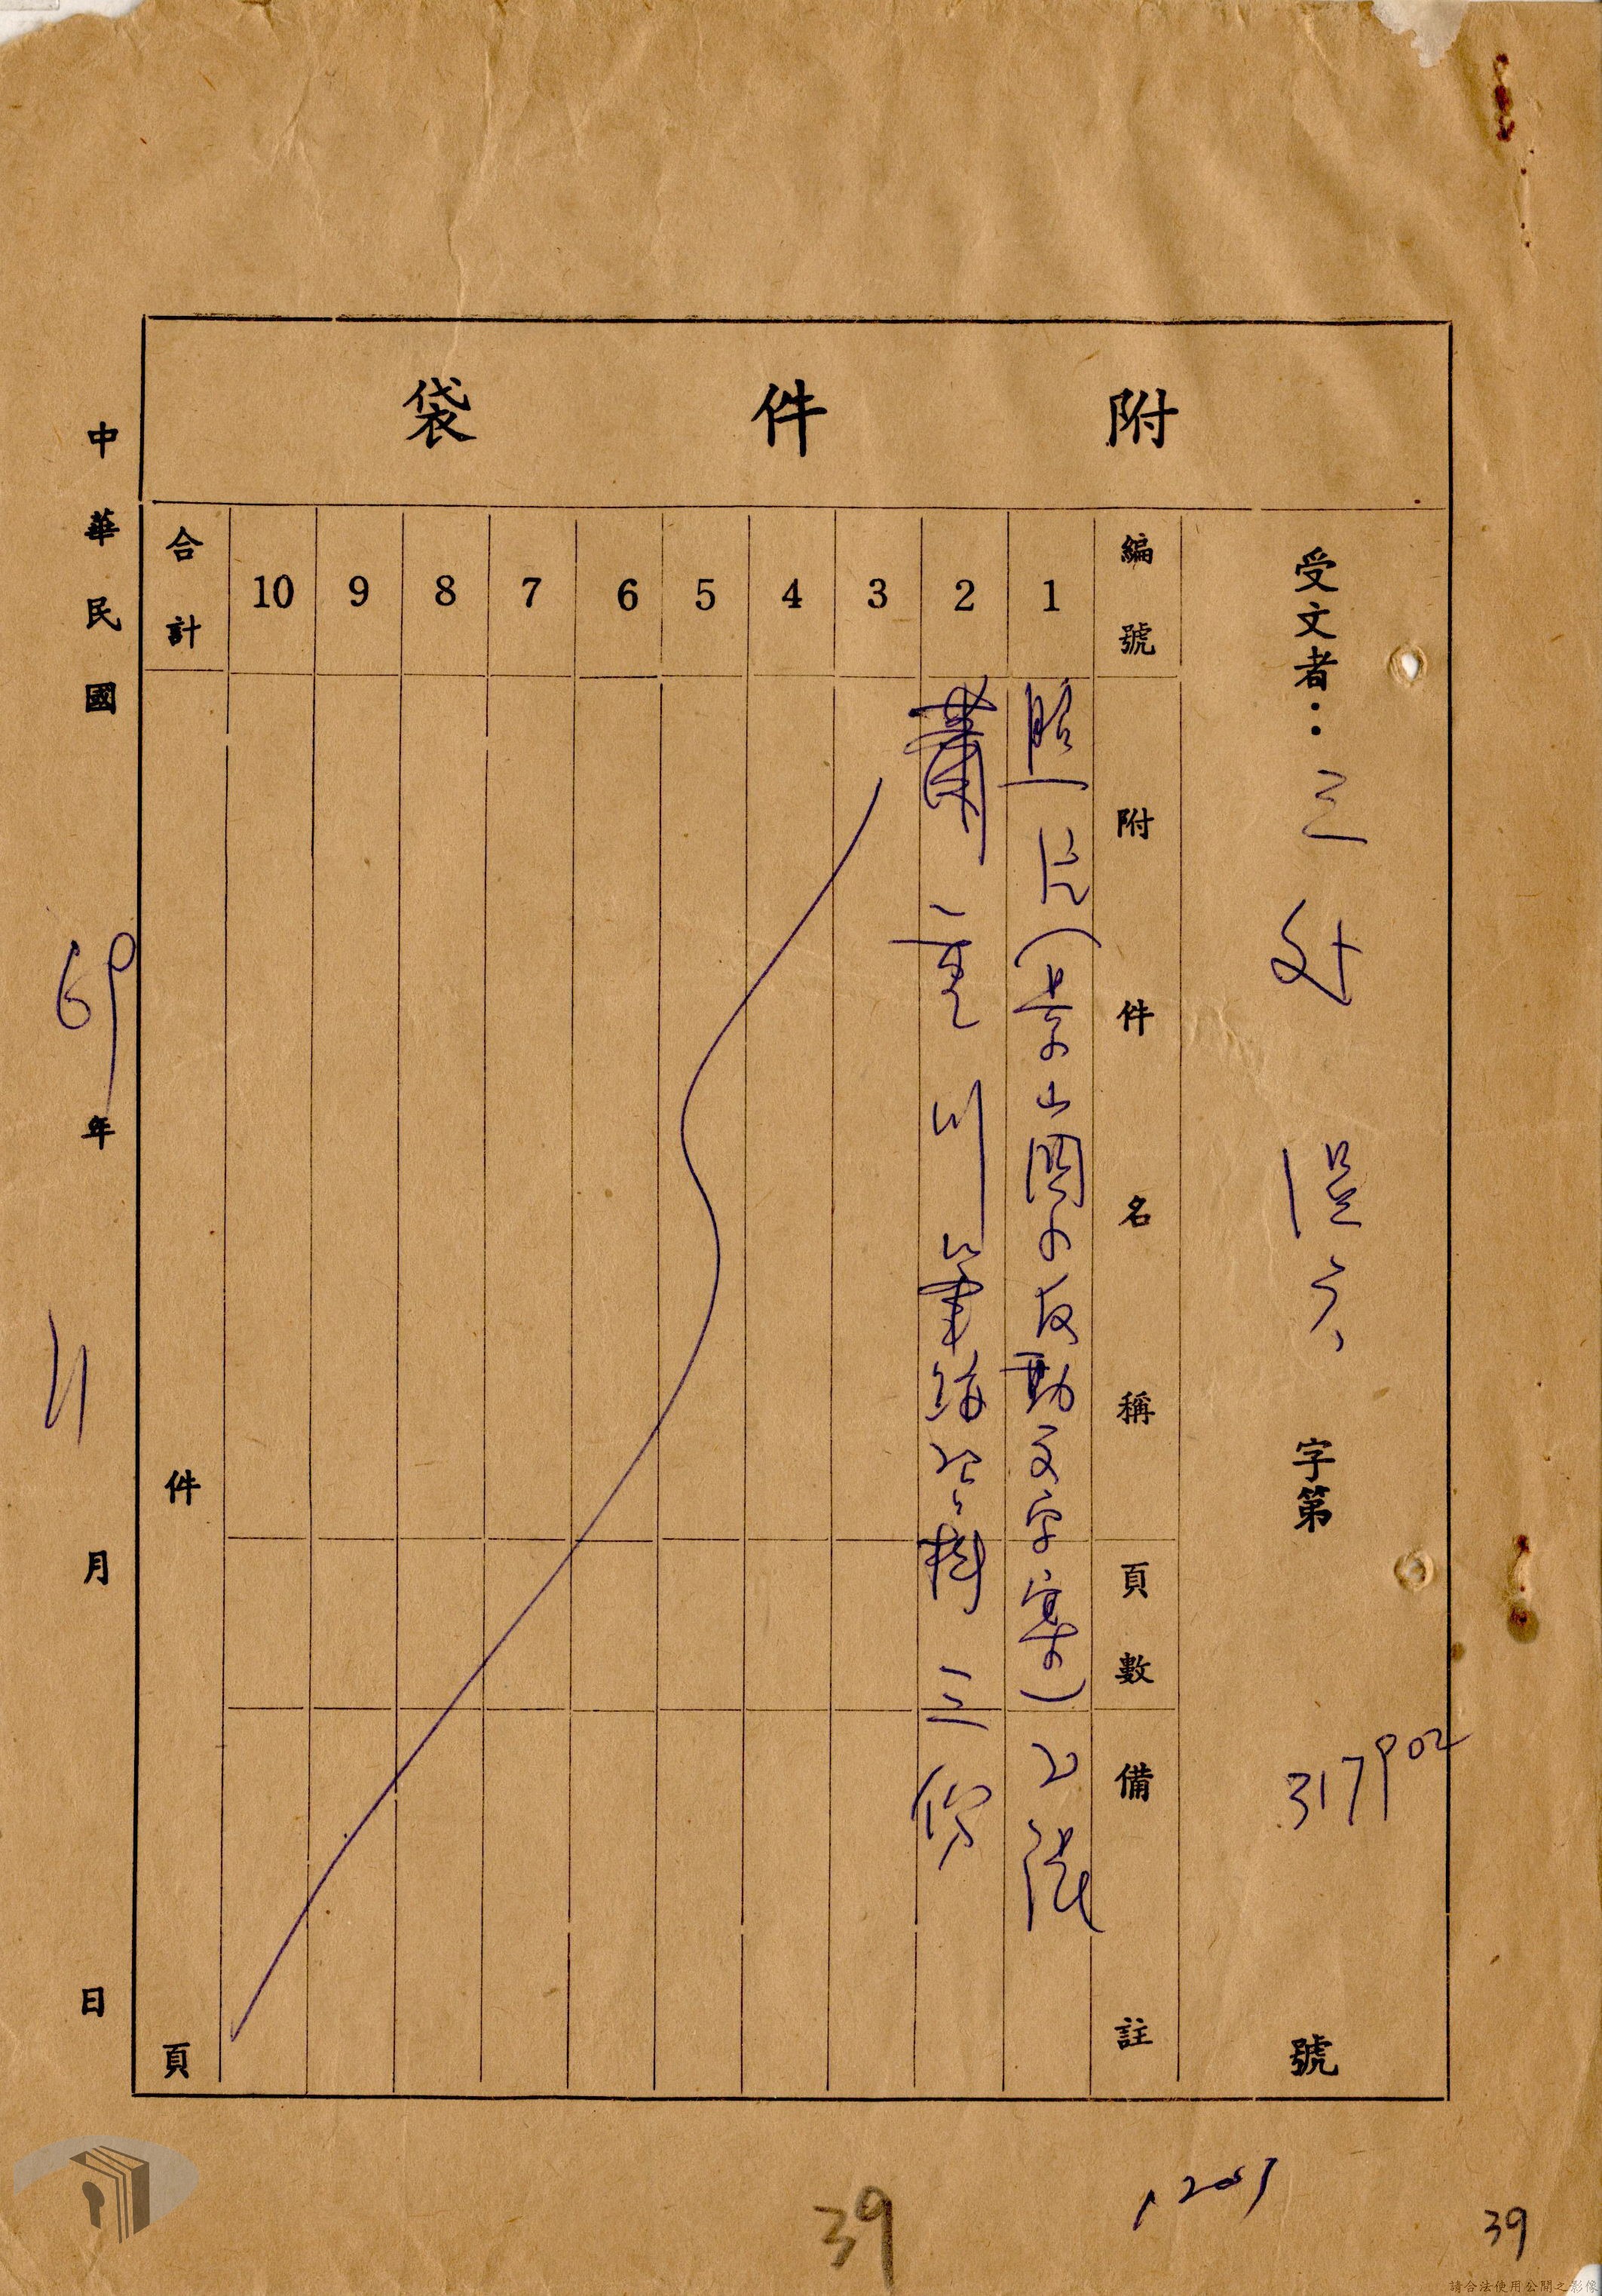 附件袋
受文者：三处 偵六 字第 317902 號
編號 附件名稱 頁數 備註
1 照片(景山國小反動文字案)2張
2 蕭 川筆跡 三份
3
4
5
6
7
8
9
10
合計 件 頁
中華民國 69 年 11 月 日
39
39
請合法使用公開之影像